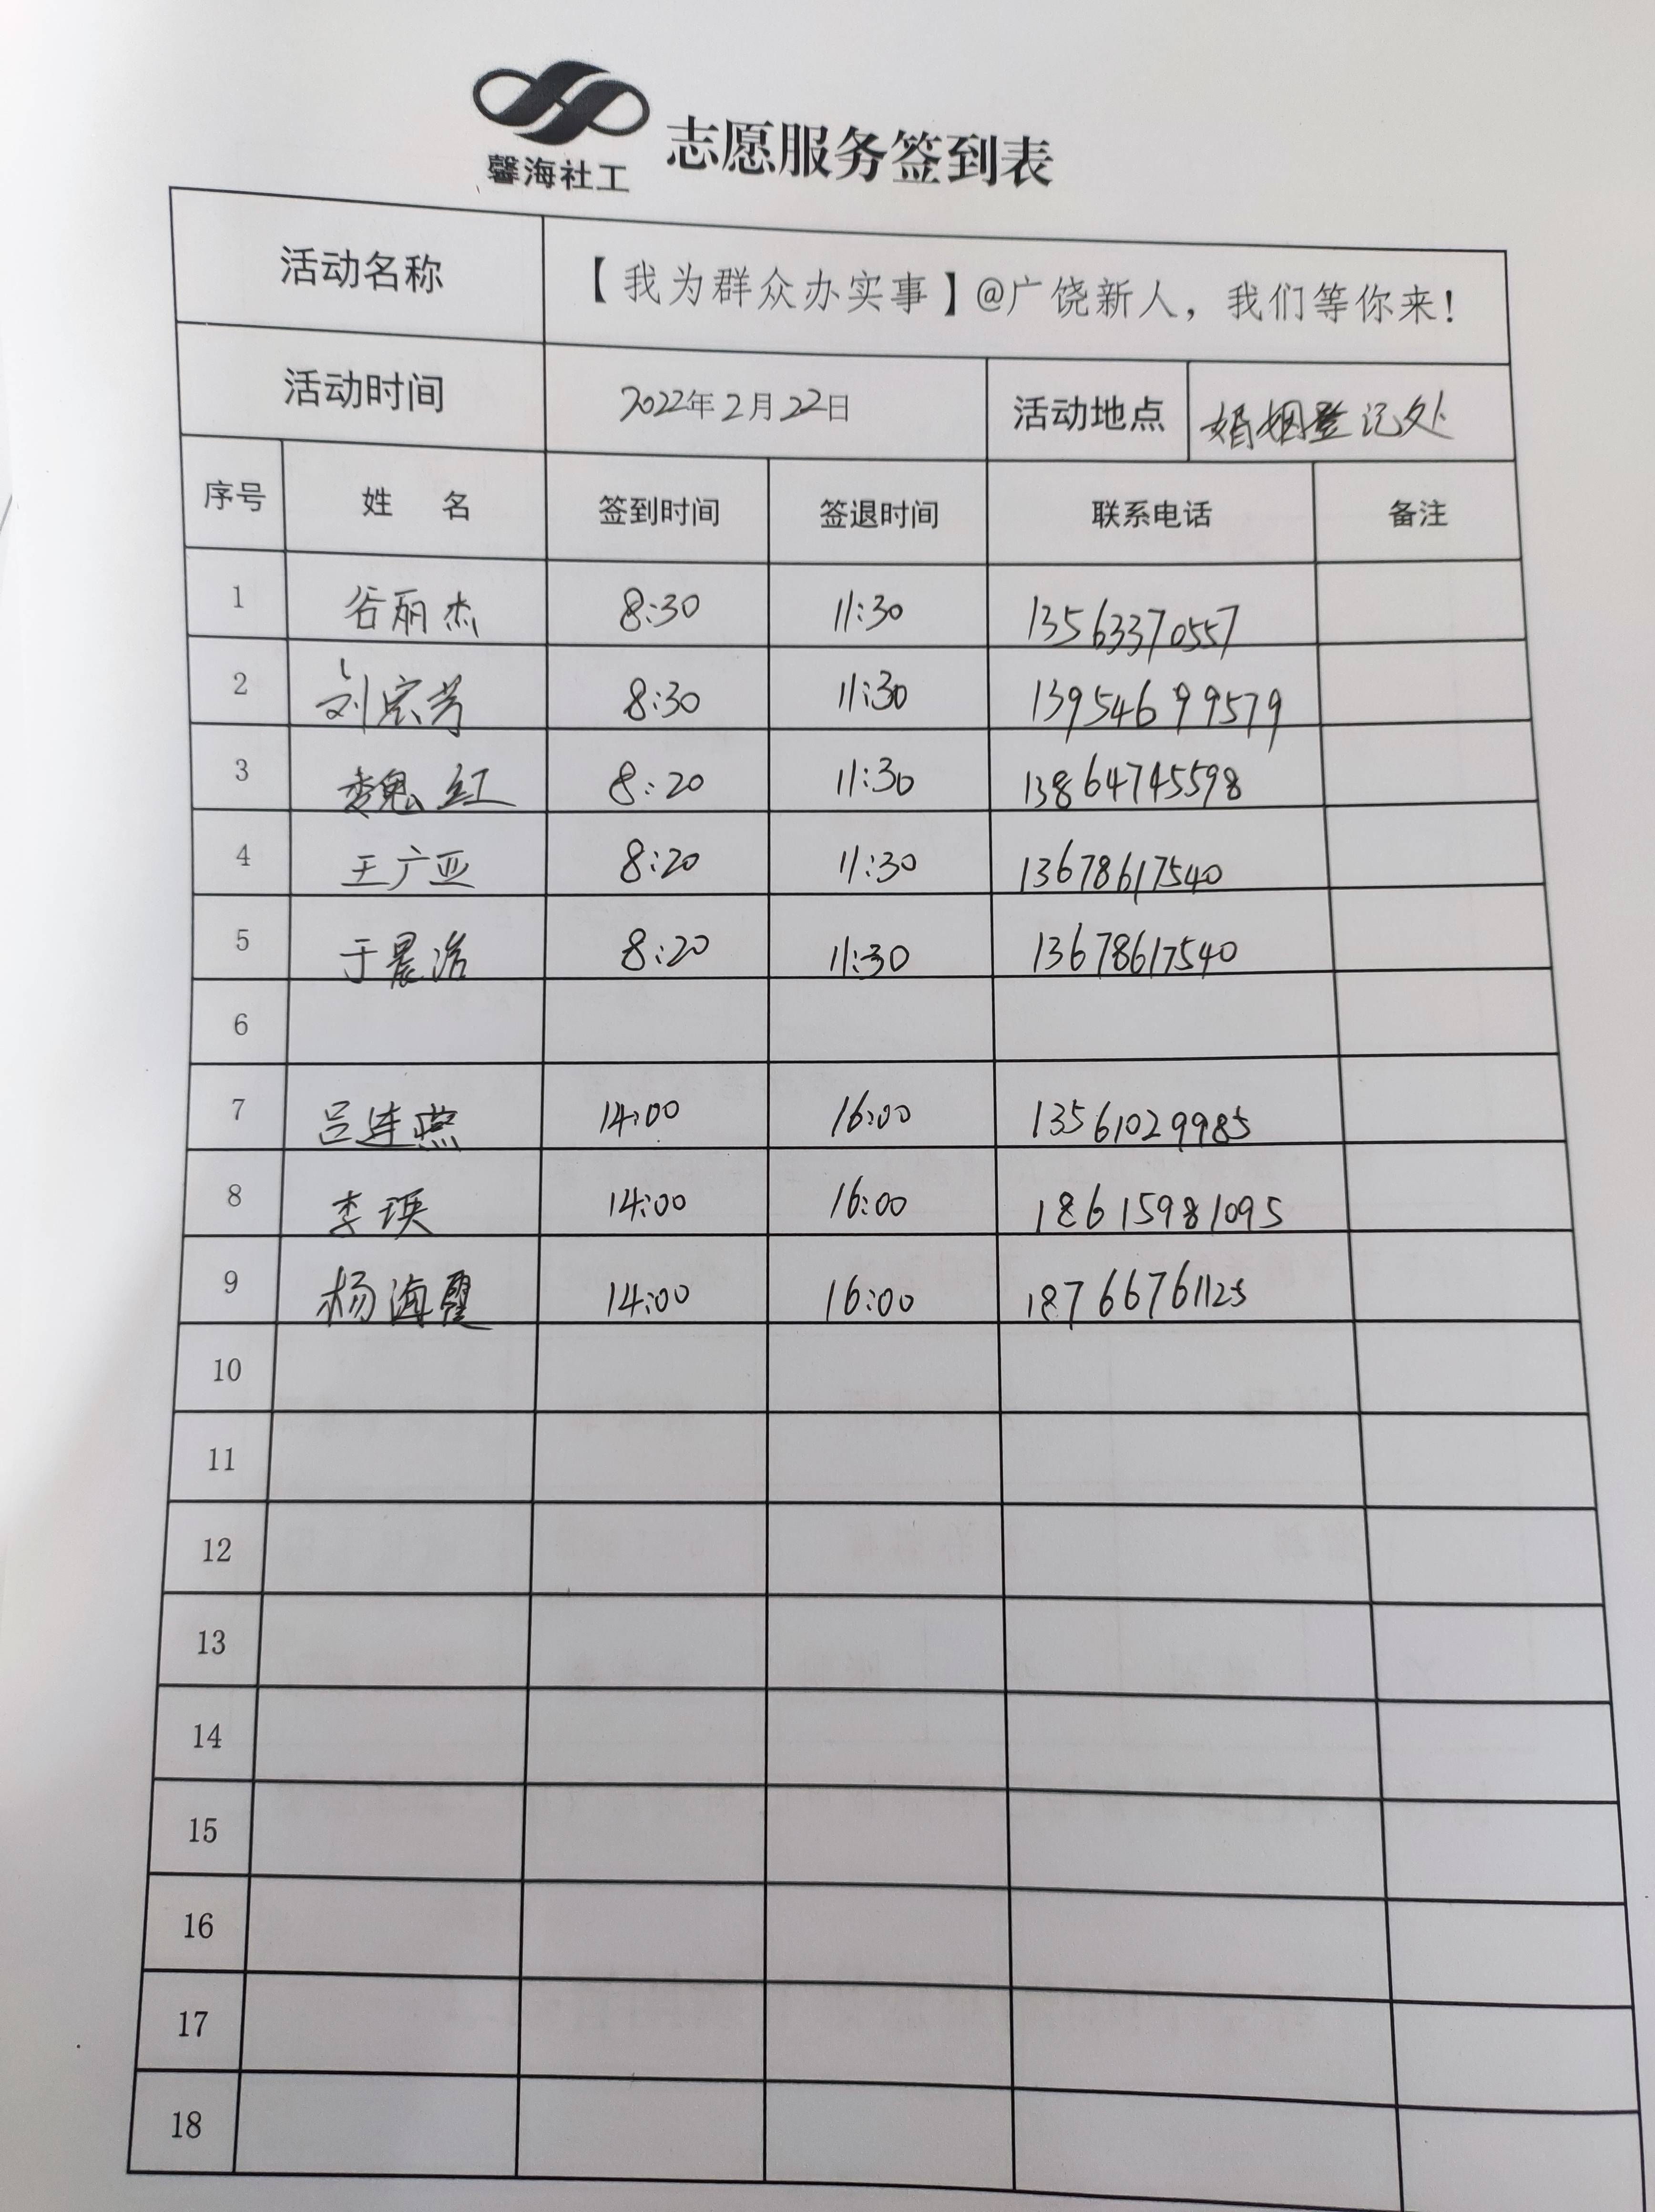 馨海社工 志愿服务签到表
活动名称 【我为群众办实事】@广饶新人，我们等你来！
活动时间 2022年2月22日 活动地点 婚姻登记处
序号 姓 名 签到时间 签退时间 联系电话 备注
1 谷丽杰 8:30 11:30 13563370557
2 刘宏芳 8:30 11:30 13954699579
3 魏红 8:20 11:30 13864745598
4 王广亚 8:20 11:30 13678617540
5 于晨浩 8:20 11:30 13678617540
6
7 吕连燕 14:00 16:00 13561029985
8 李瑛 14:00 16:00 18615981095
9 杨海霞 14:00 16:00 18766761125
10
11
12
13
14
15
16
17
18